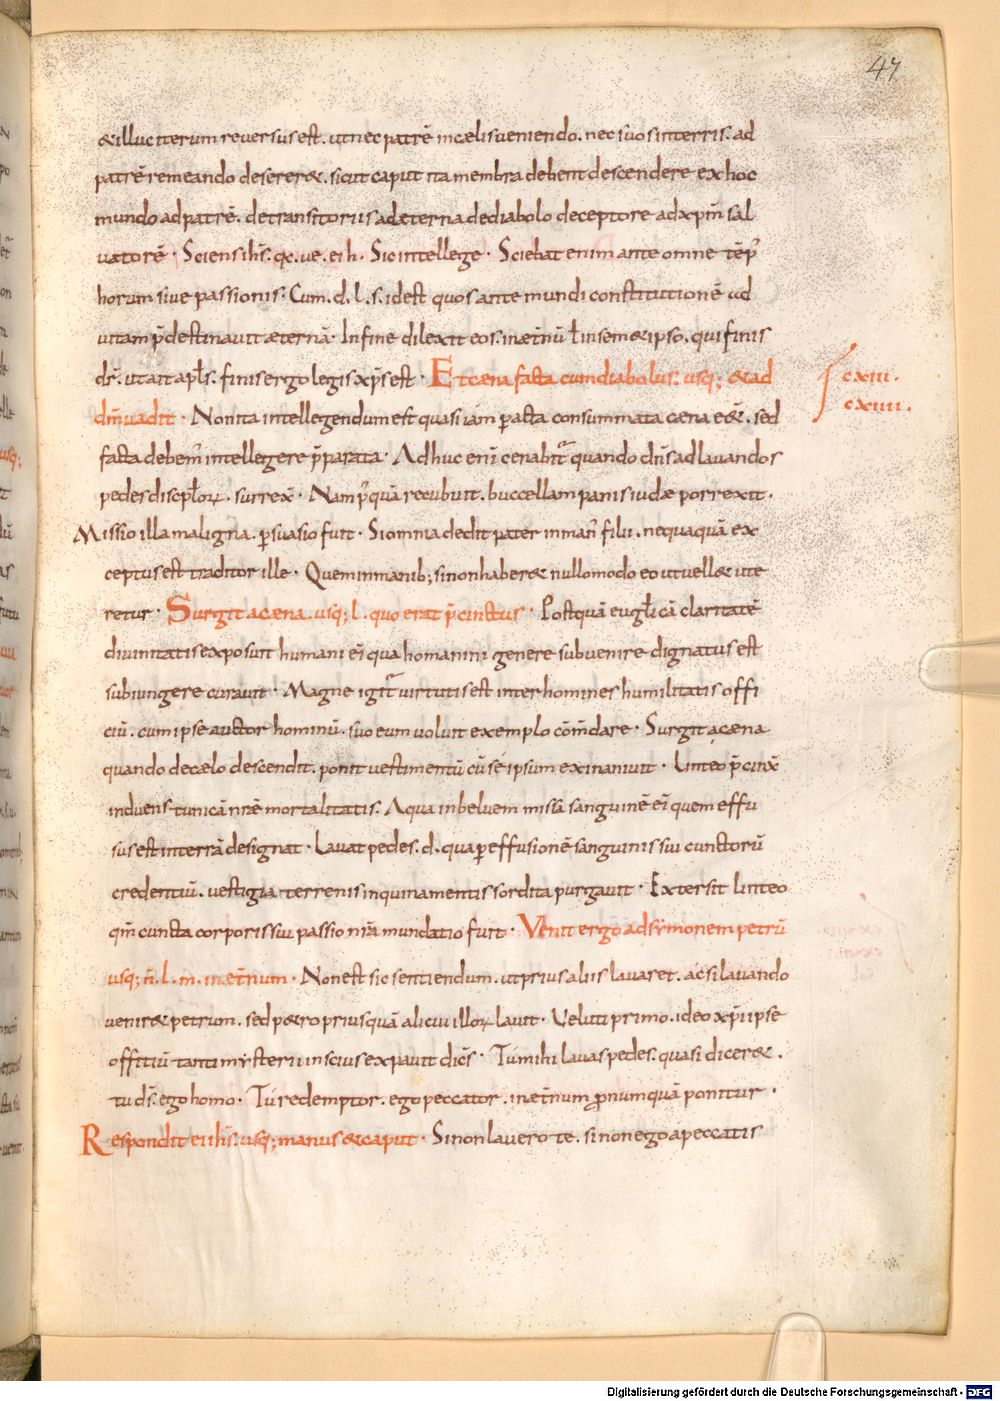 47
&illuc iterum reversus est. ut nec patrē in cælis veniendo. nec suos in terris. ad
patrē remeando deserer&. sicut caput ita membra debent descendere ex hoc
mundo ad patrē. de transitoriis ad æterna de diabolo deceptore ad xp̄m sal
vatorē· Sciens ih̄s. qc. ve. ei h. Sic intellege· Sciebat enim ante omne tēp̄
horum sive passionis: Cum. d. l. s. id est quos ante mundi constitutionē ad
vitam p̄destinavit æternā· In fine dilexit eos. in æt̄nū ł in sem&ipso. qui finis
dr̄. ut ait apl̄s. finis ergo legis xp̄s est· Et cæna facta cum diabolus. usq; &ad
dm̄ vadit· Non ita intellegendum est quasi iam pacta consummata cæna e&̄. sed
cxiii.
cxiiii.
facta debem' intellegere p̄parata· Adhuc eni cenabit̄ quando dn̄s ad lavandos
pedes discipl̄oꝝ. surrex̄· Nam p'quā recubuit. buccellam panis iudæ porrexit·
Missio illa maligna. psuasio fuit· Si omnia dedit pater in man' filii. nequaquā ex
ceptus est traditor ille· Quem in manib; si non haber& nullo modo eo ut vell& ute
retur· Surgit a cæna. usq; l. quo erat p̄cinctus· Postquā eugl̄ica claritatē
divinitatis exposuit humani ei qua homanini genere subvenire dignatus est
subiungere curavit· Magne igit̄ virtutis est inter homines humilitatis offi
ciū. cum ipse auctor hominū. suo eum voluit exemplo cōm̄dare· Surgit a cæna
quando de cælo descendit. ponit vestimentū cū se ipsum exinanivit· Linteo p̄cinx̄
induens tunicā nr̄ē mortalitatis. Aqua in belvem missa sanguinē ei quem effu
sus est in terrā designat· Lavat pedes. d. qua p effusionē sanguinis sui cunctorū
credentiū. vestigia terrenis inquinamentis sordita purgavit· Extersit linteo
qm̄ cuncta corporis sui passio nr̄a mundatio fuit· Venit ergo ad symonem petrū
usq; n̄. l. m. in æt̄num· Non est sic sentiendum. ut prius aliis lavaret. ac si lavando
venir& petrum. sed p&ro priusquā alicui illoꝝ lavit· Veluti primo. ideo xp̄i ipse
offitiū tanti mysterii inscius expavit dic̄s· Tu mihi lavas pedes. quasi dicer&.
tu ds̄. ego homo· Tu redemptor. ego peccator. in æt̄num p̱ numquā ponitur·
Respondit ei ih̄s. usq; manus & caput· Si non lavero te. si non ego a peccatis
Digitalisierung gefördert durch die Deutsche Forschungsgemeinschaft - DFG